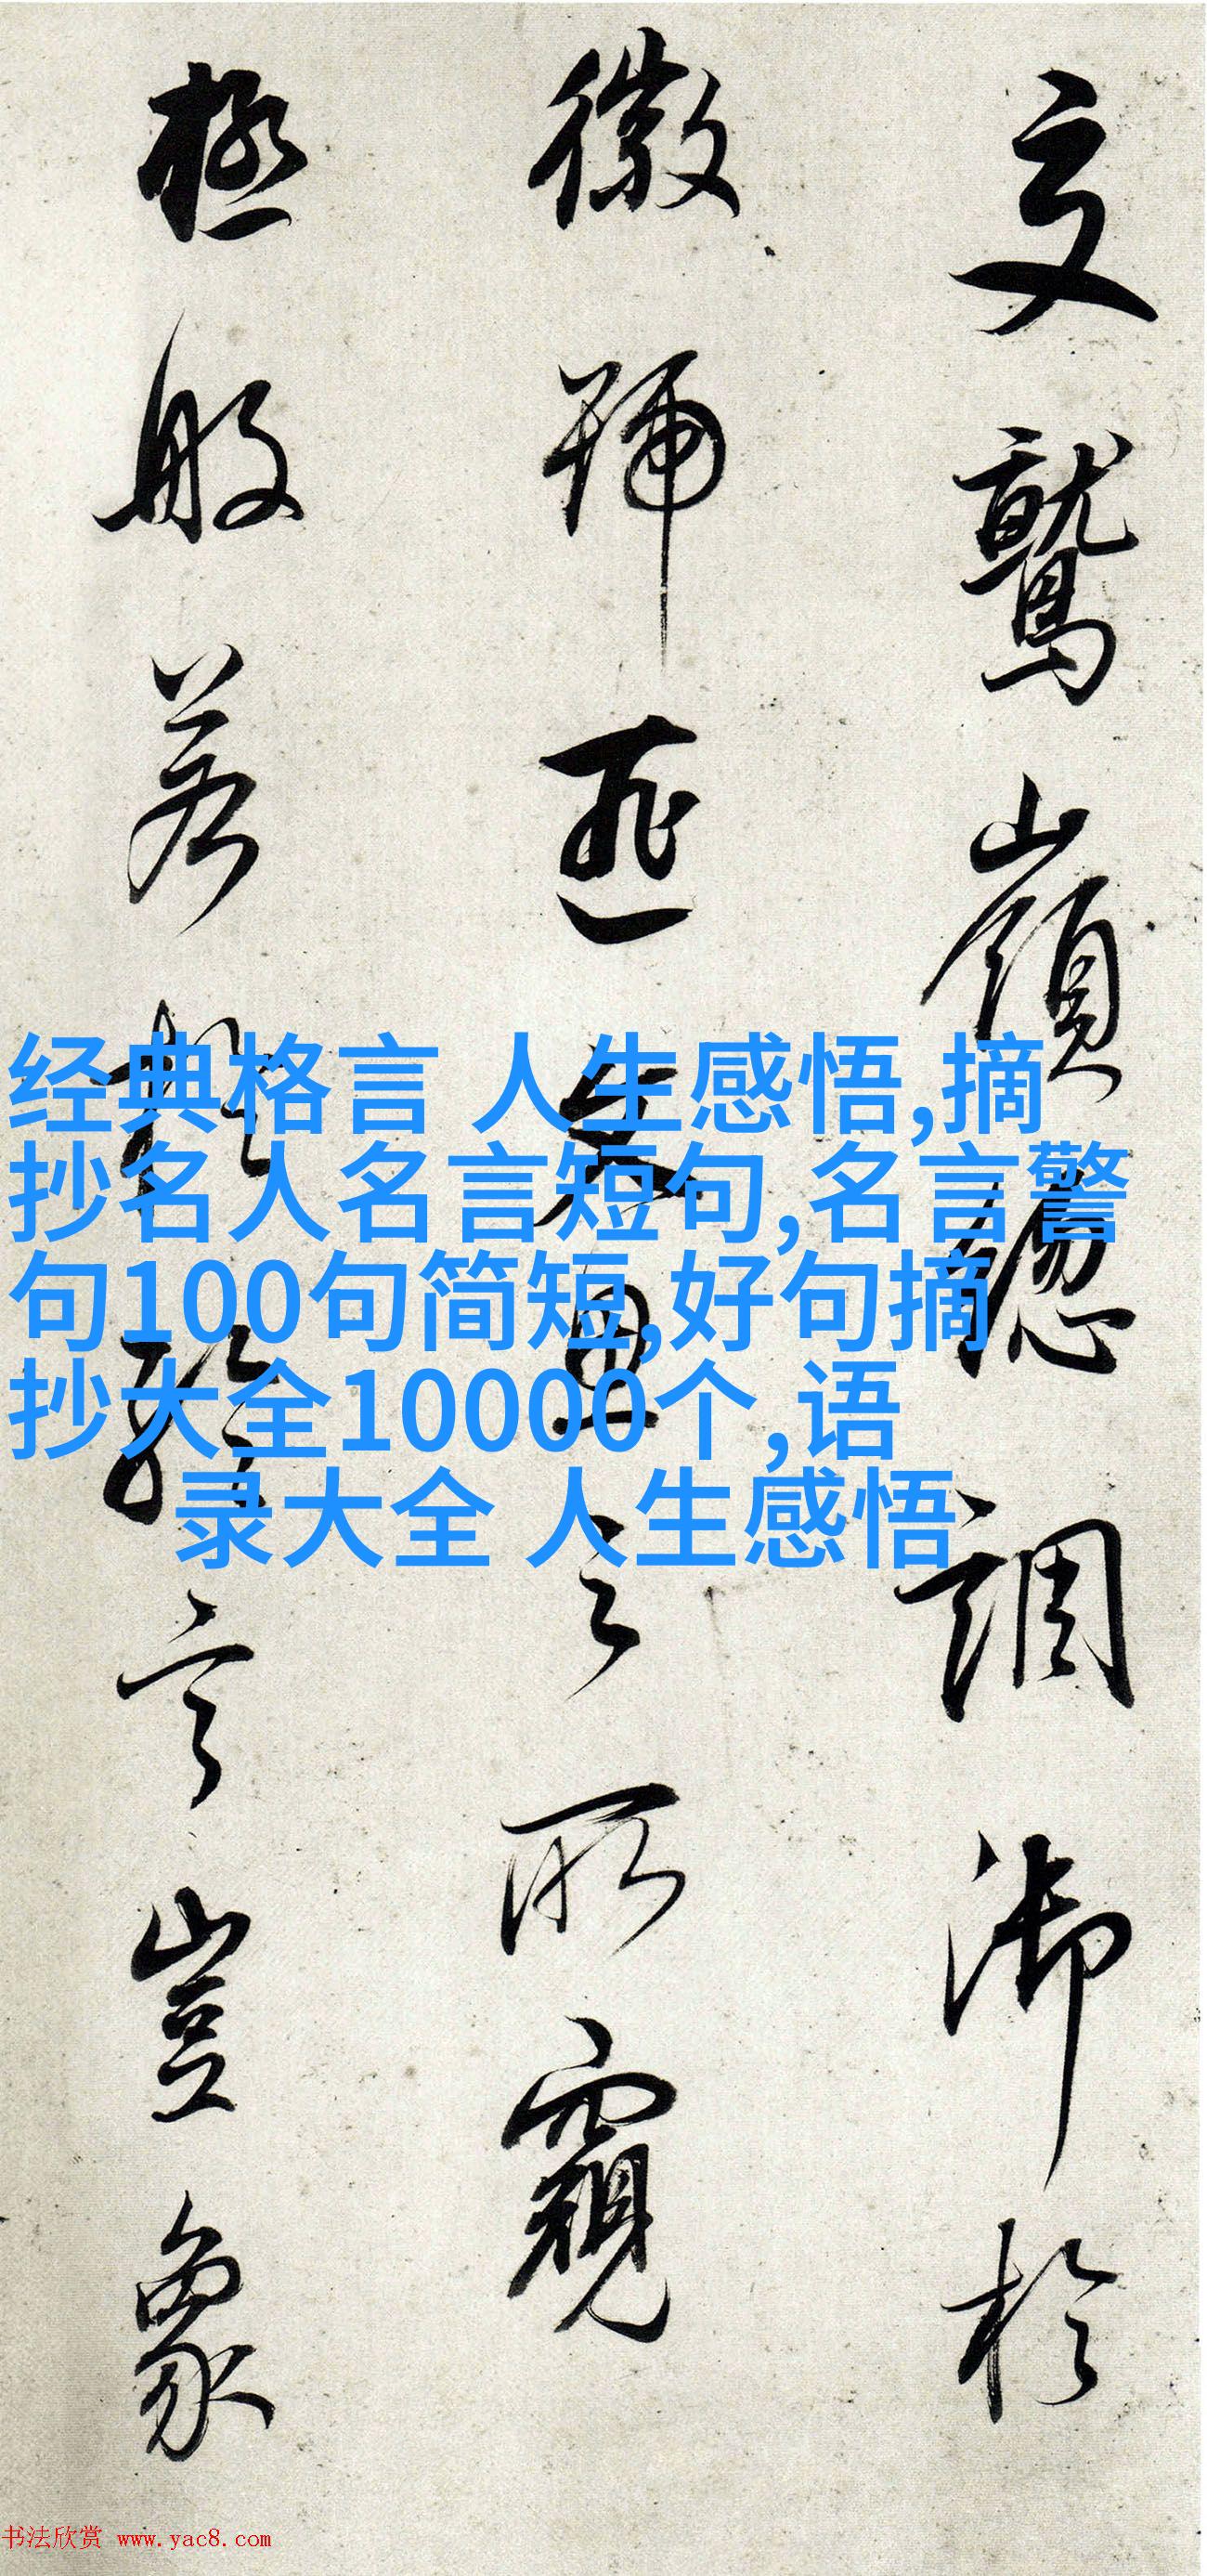 鷲嶺總調御於
徽號匪文思之所窺
極般若 言豈象
经典格言 人生感悟,摘
抄名人名言短句,名言警
句100句简短,好句摘
抄大全10000个,语
录大全 人生感悟
书法欣赏 www.yac8.com